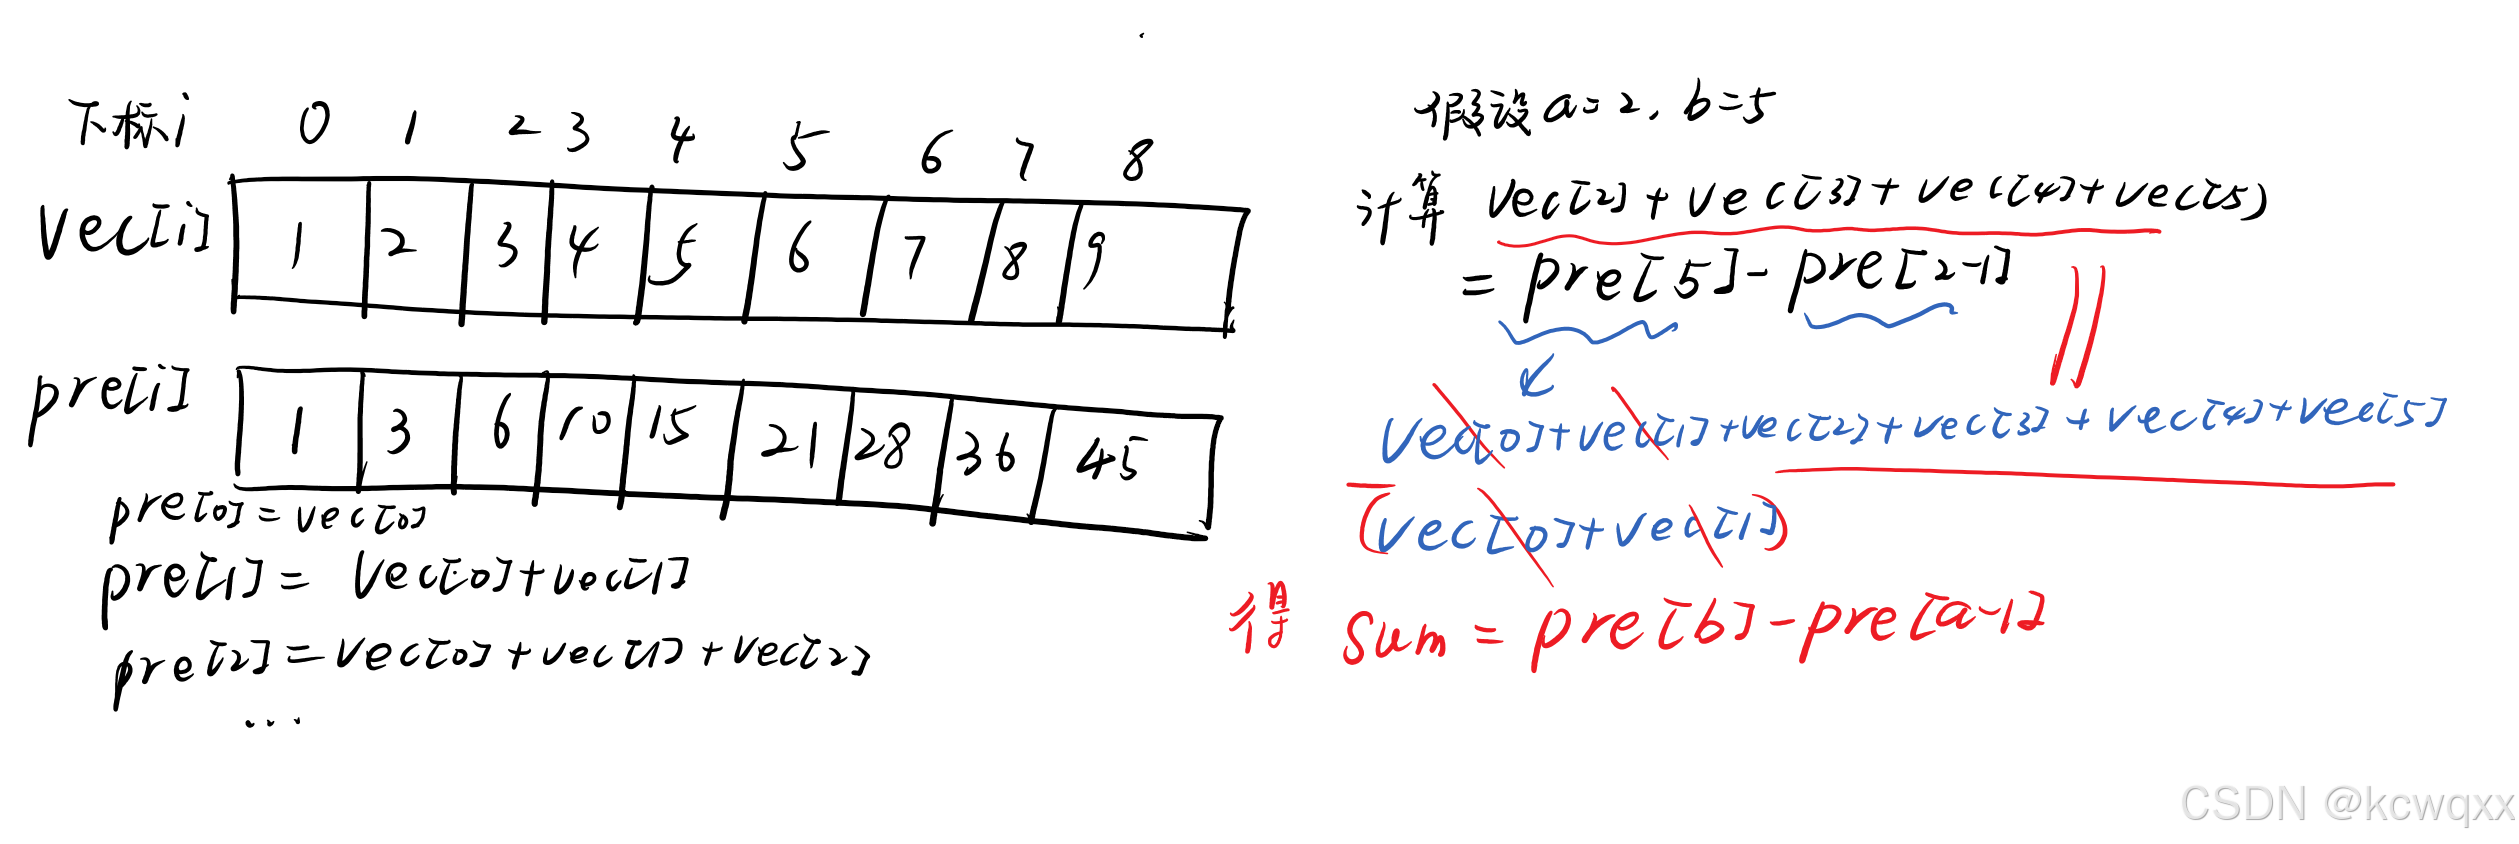 下标i 0 1 2 3 4 5 6 7 8
vec[i] 1 2 3 4 5 6 7 8 9
pre[i] 1 3 6 10 15 21 28 36 45
pre[0] = vec[0]
pre[1] = vec[0] + vec[1]
pre[2] = vec[0] + vec[1] + vec[2]
...
假设a=2, b=5
计算 vec[2] + vec[3] + vec[4] + vec[5]
= pre[5] - pre[2-1]
vec[0] + vec[1] + vec[2] + vec[3] + vec[4] + vec[5]
- (vec[0] + vec[1])
得 sum = pre[b] - pre[a-1]
CSDN @kcwqxx